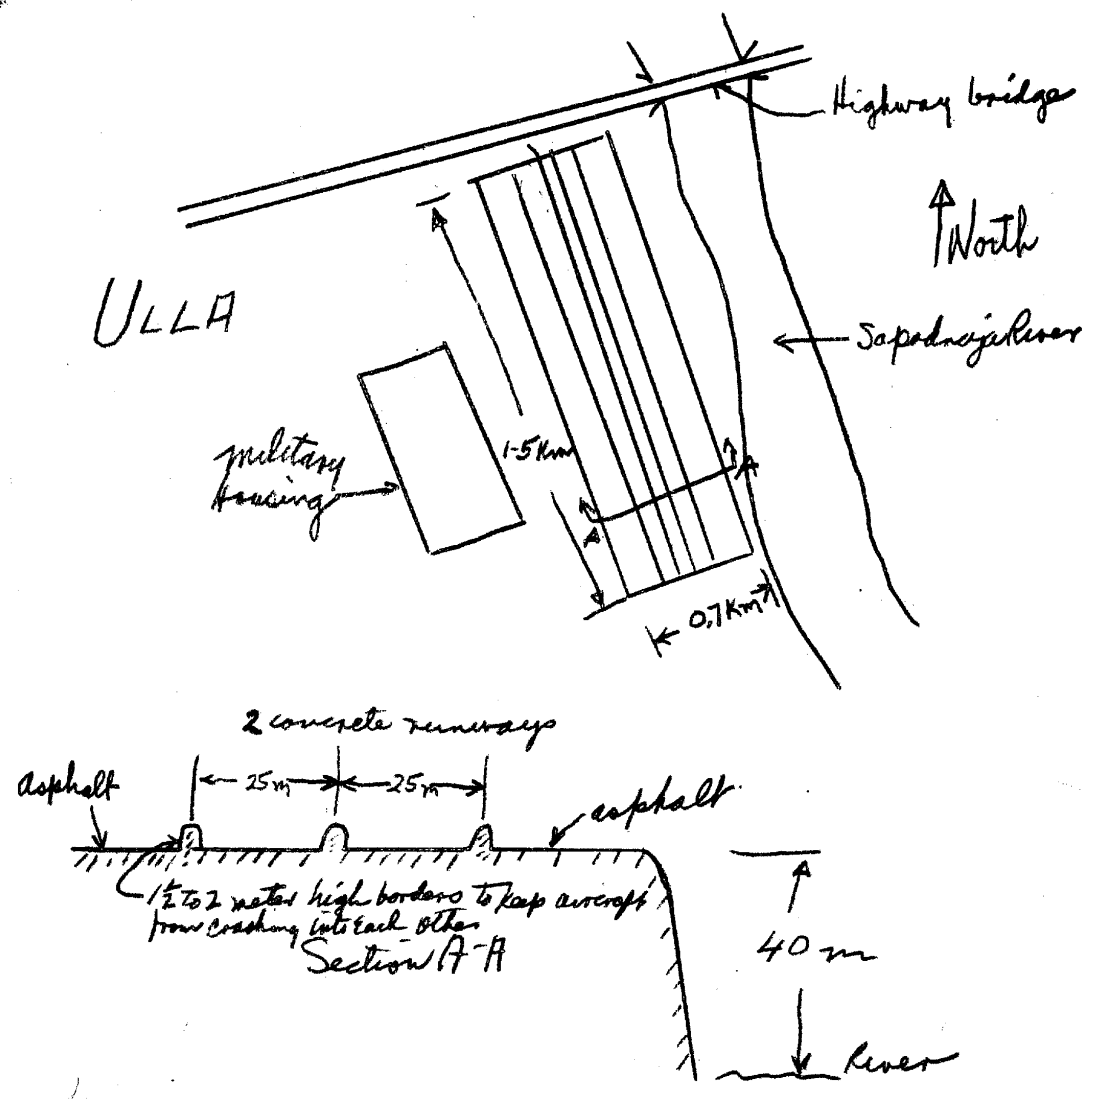 Highway bridge
North
ULLA
Sapadnaja River
military
housing
1.5 Km
A
A
0.7 Km
2 concrete runways
asphalt
25m
25m
asphalt
1½ to 2 meter high borders to keep aircraft
from crashing into Each other
Section A-A
40 m
River